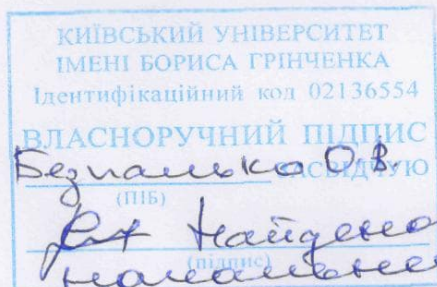 КИЇВСЬКИЙ УНІВЕРСИТЕТ
ІМЕНІ БОРИСА ГРІНЧЕНКА
Ідентифікаційний код 02136554
ВЛАСНОРУЧНИЙ ПІДПИС
Безпалько О.В. ЗАСВІДЧУЮ
(ПІБ)
Найдено
(підпис)